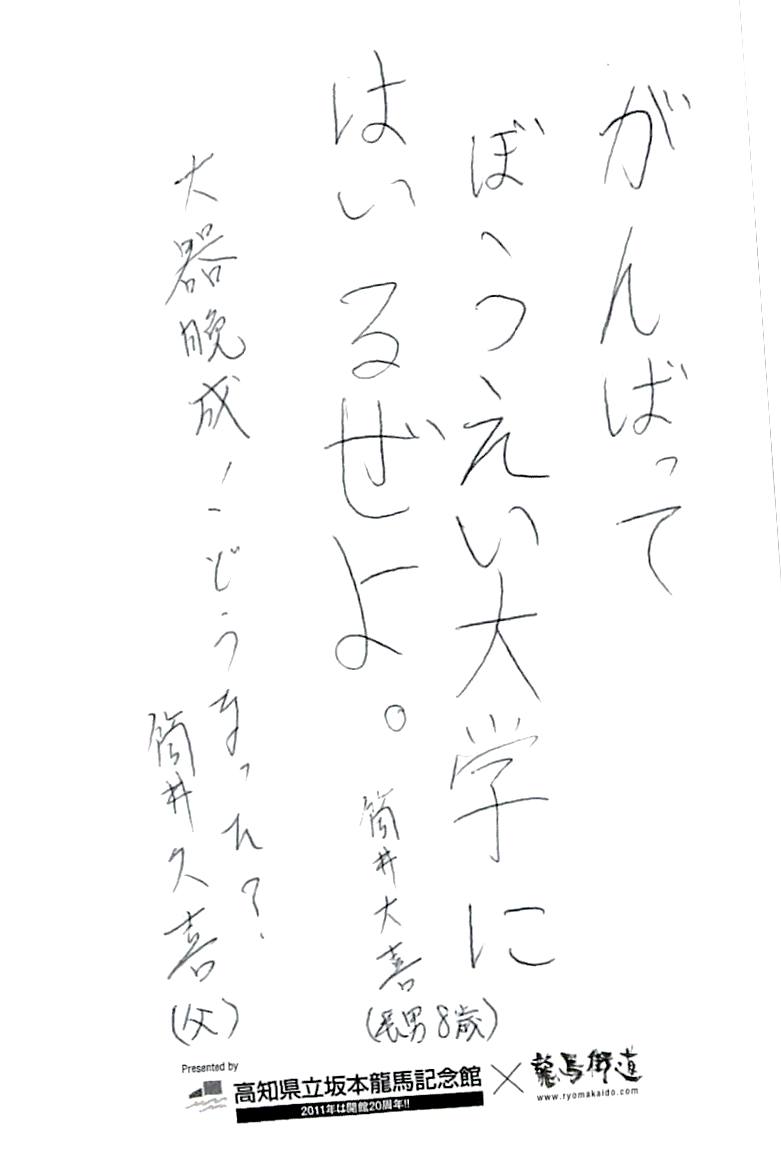 がんばって
ぼうえい大学に
はいるぜよ。
筒井大喜
(長男8歳)
大器晩成!
どうなった?
筒井久喜
(父)
Presented by
高知県立坂本龍馬記念館×龍馬街道
2011年は開館20周年!!
www.ryomakaido.com